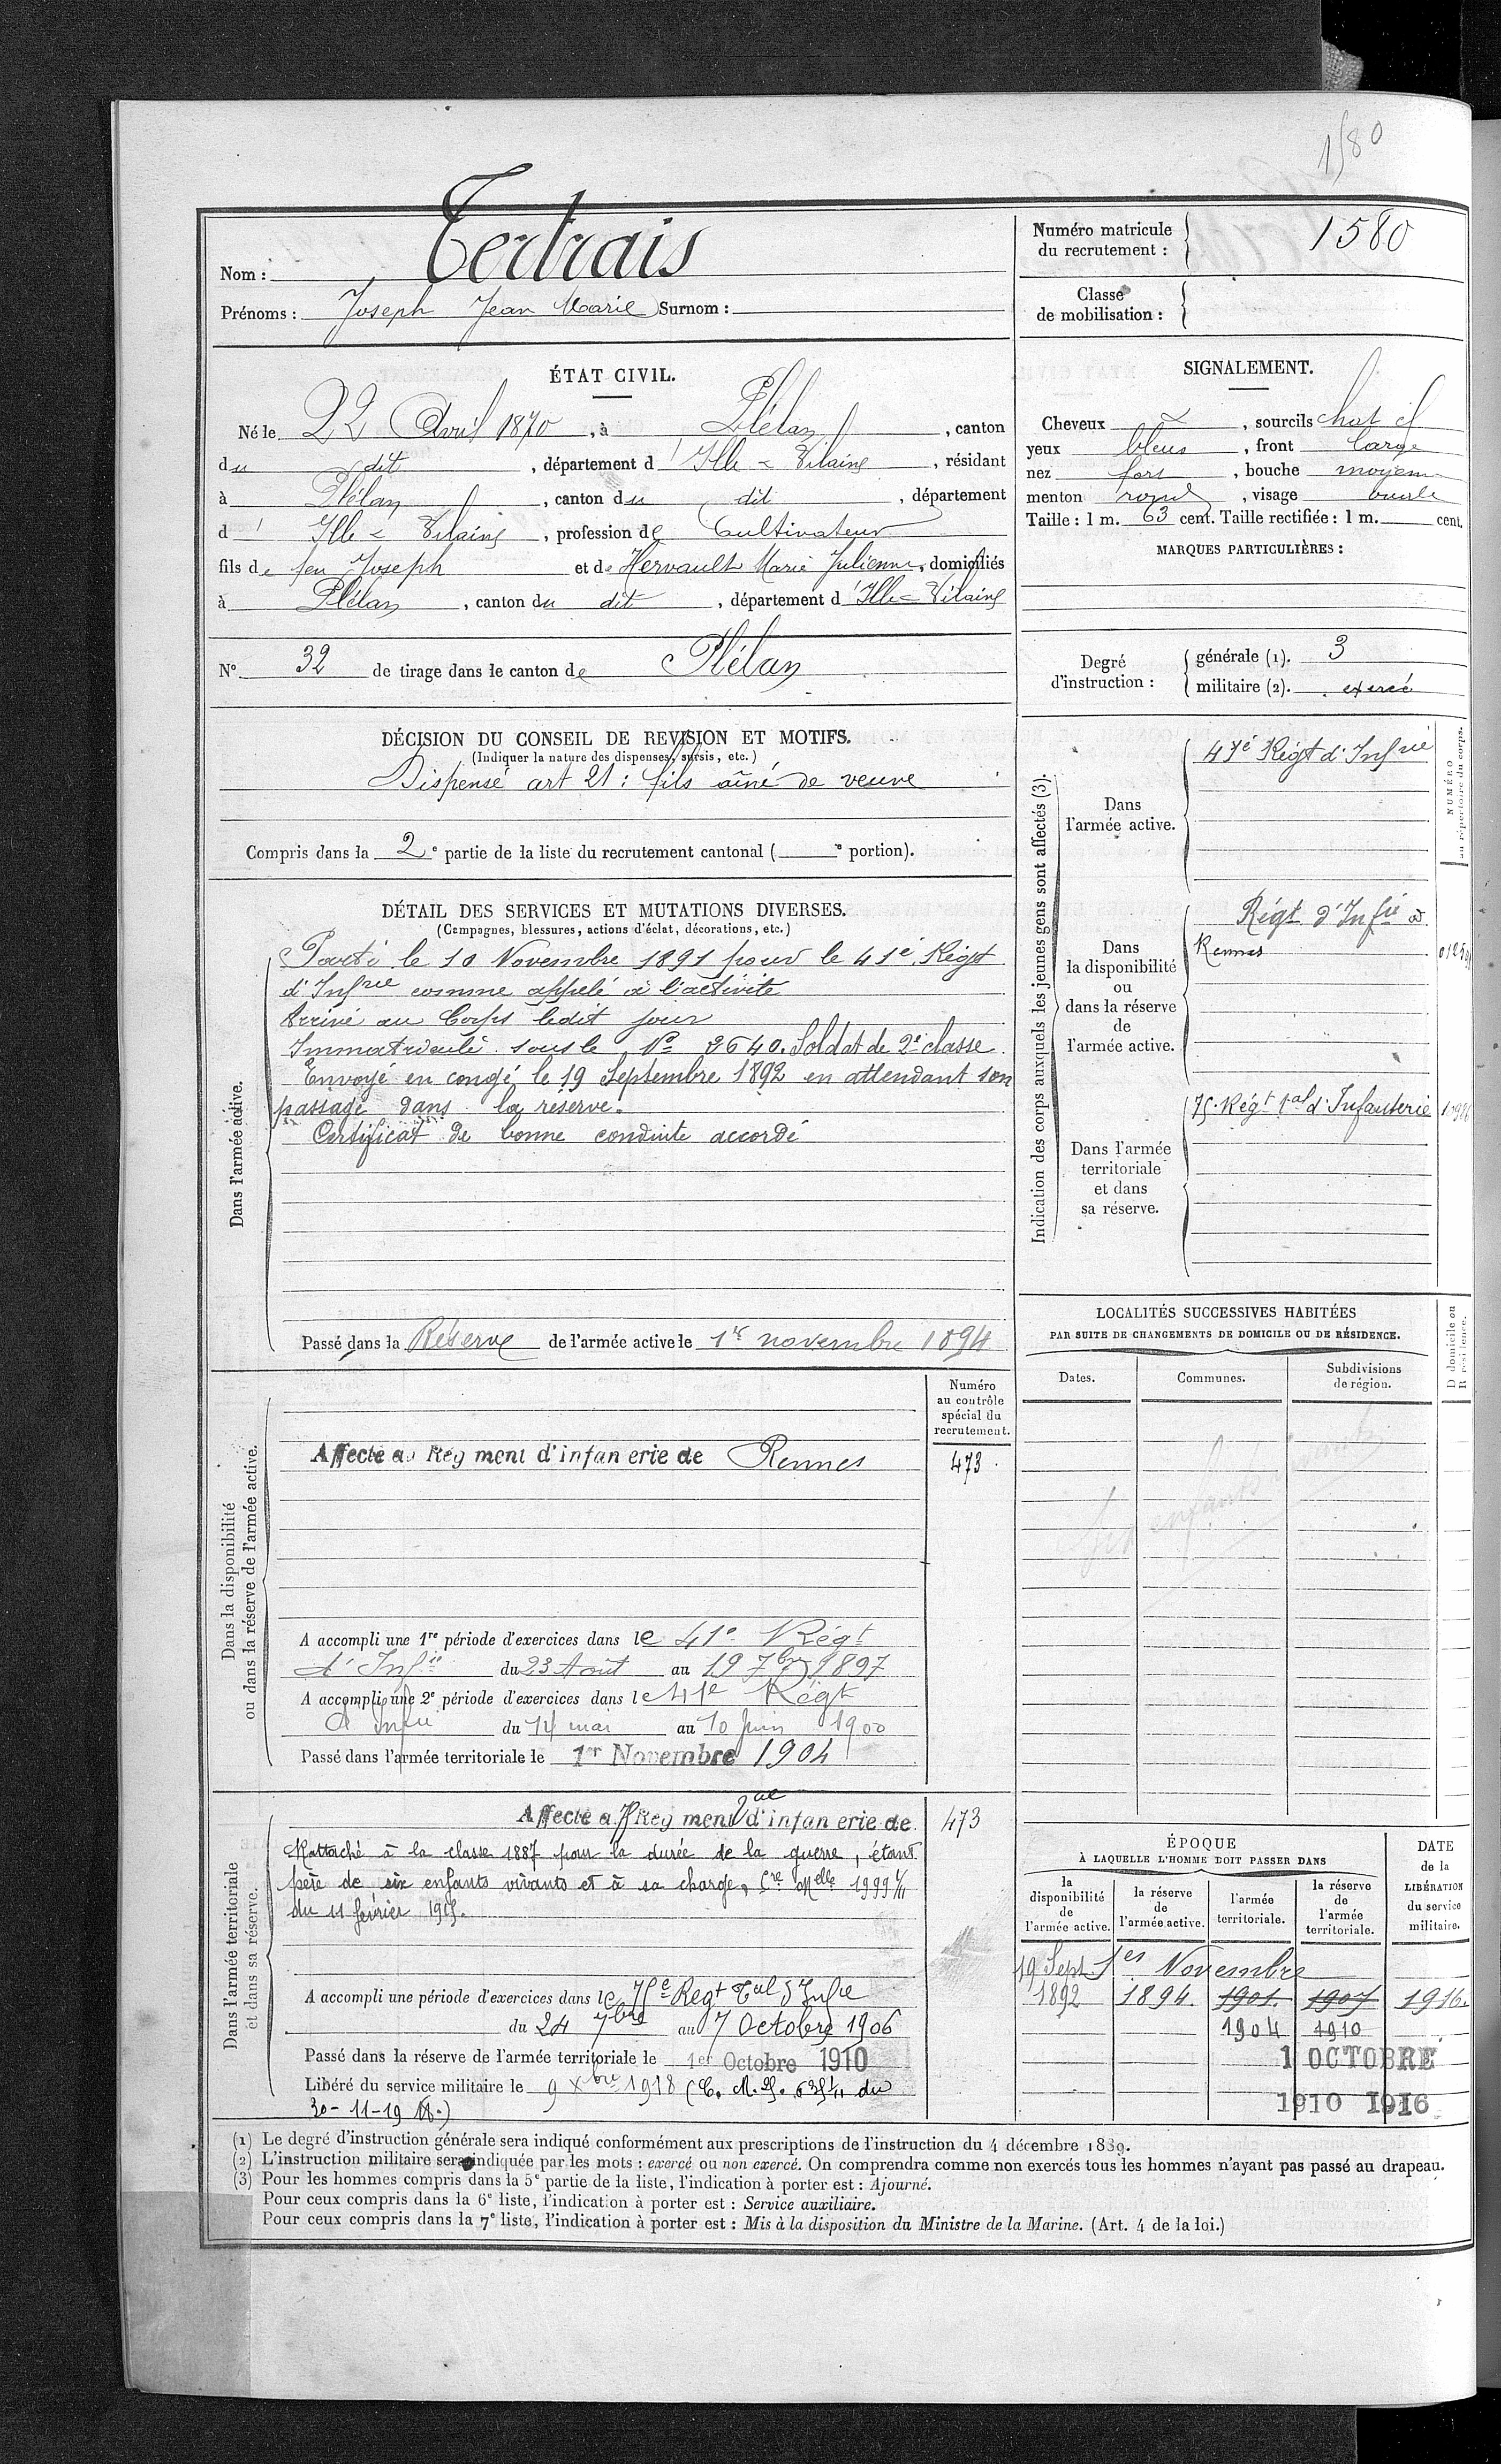 1580
Nom : Tertrais
Prénoms : Joseph Jean Marie Surnom :
Numéro matricule
du recrutement :
1580
Classe
de mobilisation :
ÉTAT CIVIL.
Né le 22 Avril 1870, à Plélan, canton
du dit, département d' Ille & Vilaine, résidant
à Plélan, canton du dit, département
d' Ille & Vilaine, profession de Cultivateur
fils de feu Joseph et de Hervault Marie Julienne, domiciliés
à Plélan, canton du dit, département d' Ille & Vilaine
N° 32 de tirage dans le canton de Plélan
SIGNALEMENT.
Cheveux &, sourcils chat cl
yeux bleus, front large
nez fort, bouche moyenne
menton rond, visage ovale
Taille : 1 m. 63 cent. Taille rectifiée : 1 m. cent.
MARQUES PARTICULIÈRES :
Degré
d'instruction :
générale (1). 3
militaire (2). exercé
DÉCISION DU CONSEIL DE REVISION ET MOTIFS.
(Indiquer la nature des dispenses, sursis, etc.)
Dispensé art 21 : fils aîné de veuve
Compris dans la 2e partie de la liste du recrutement cantonal ( e portion).
DÉTAIL DES SERVICES ET MUTATIONS DIVERSES.
(Campagnes, blessures, actions d'éclat, décorations, etc.)
Dans l'armée active.
Parti le 10 Novembre 1891 pour le 41e Régt
d'Infrie comme appelé à l'activité
Arrivé au Corps ledit jour
Immatriculé sous le No 3640. Soldat de 2e classe.
Envoyé en congé le 19 Septembre 1892 en attendant son
passage dans la réserve.
Certificat de bonne conduite accordé
Passé dans la Réserve de l'armée active le 1er novembre 1894
Indication des corps auxquels les jeunes gens sont affectés (3).
NUMÉRO
au répertoire du corps.
Dans
l'armée active.
41e Régt d'Infrie
Dans
la disponibilité
ou
dans la réserve
de
l'armée active.
Régt d'Infie de
Rennes
Dans l'armée
territoriale
et dans
sa réserve.
75e Régt tal d'Infanterie
LOCALITÉS SUCCESSIVES HABITÉES
PAR SUITE DE CHANGEMENTS DE DOMICILE OU DE RÉSIDENCE.
Dates.
Communes.
Subdivisions
de région.
D domicile ou
R résidence.
Dans la disponibilité
ou dans la réserve de l'armée active.
Numéro
au contrôle
spécial du
recrutement.
Affecté au Rég ment d'infan erie de Rennes
473
A accompli une 1re période d'exercices dans le 41e Régt
d'Infie du 23 Août au 19 7bre 1897
A accompli une 2e période d'exercices dans le 41e Régt
d'infie du 14 mai au 10 juin 1900
Passé dans l'armée territoriale le 1er Novembre 1904
Dans l'armée territoriale
et dans sa réserve.
Affecté a 75 Rég ment tal d'infan erie de
473
Rattaché à la classe 1887 pour la durée de la guerre, étant
père de six enfants vivants et à sa charge, Cre Melle 1999 1/11
du 11 février 1915.
A accompli une période d'exercices dans le 75e Régt Tal d'Infie
du 24 7bre au 7 Octobre 1906
Passé dans la réserve de l'armée territoriale le 1er Octobre 1910
Libéré du service militaire le 9 Xbre 1918 (C. M. No 635 1/11 du
30-11-1918.)
ÉPOQUE
À LAQUELLE L'HOMME DOIT PASSER DANS
la
disponibilité
de
l'armée active.
la réserve
de
l'armée active.
l'armée
territoriale.
la réserve
de
l'armée
territoriale.
DATE
de la
LIBÉRATION
du service
militaire.
19 Sept. 1er Novembre
1892 1894. 1901. 1907 1916.
1904 1910
1 OCTOBRE
1910 1916
(1) Le degré d'instruction générale sera indiqué conformément aux prescriptions de l'instruction du 4 décembre 1889.
(2) L'instruction militaire sera indiquée par les mots : exercé ou non exercé. On comprendra comme non exercés tous les hommes n'ayant pas passé au drapeau.
(3) Pour les hommes compris dans la 5e partie de la liste, l'indication à porter est : Ajourné.
Pour ceux compris dans la 6e liste, l'indication à porter est : Service auxiliaire.
Pour ceux compris dans la 7e liste, l'indication à porter est : Mis à la disposition du Ministre de la Marine. (Art. 4 de la loi.)